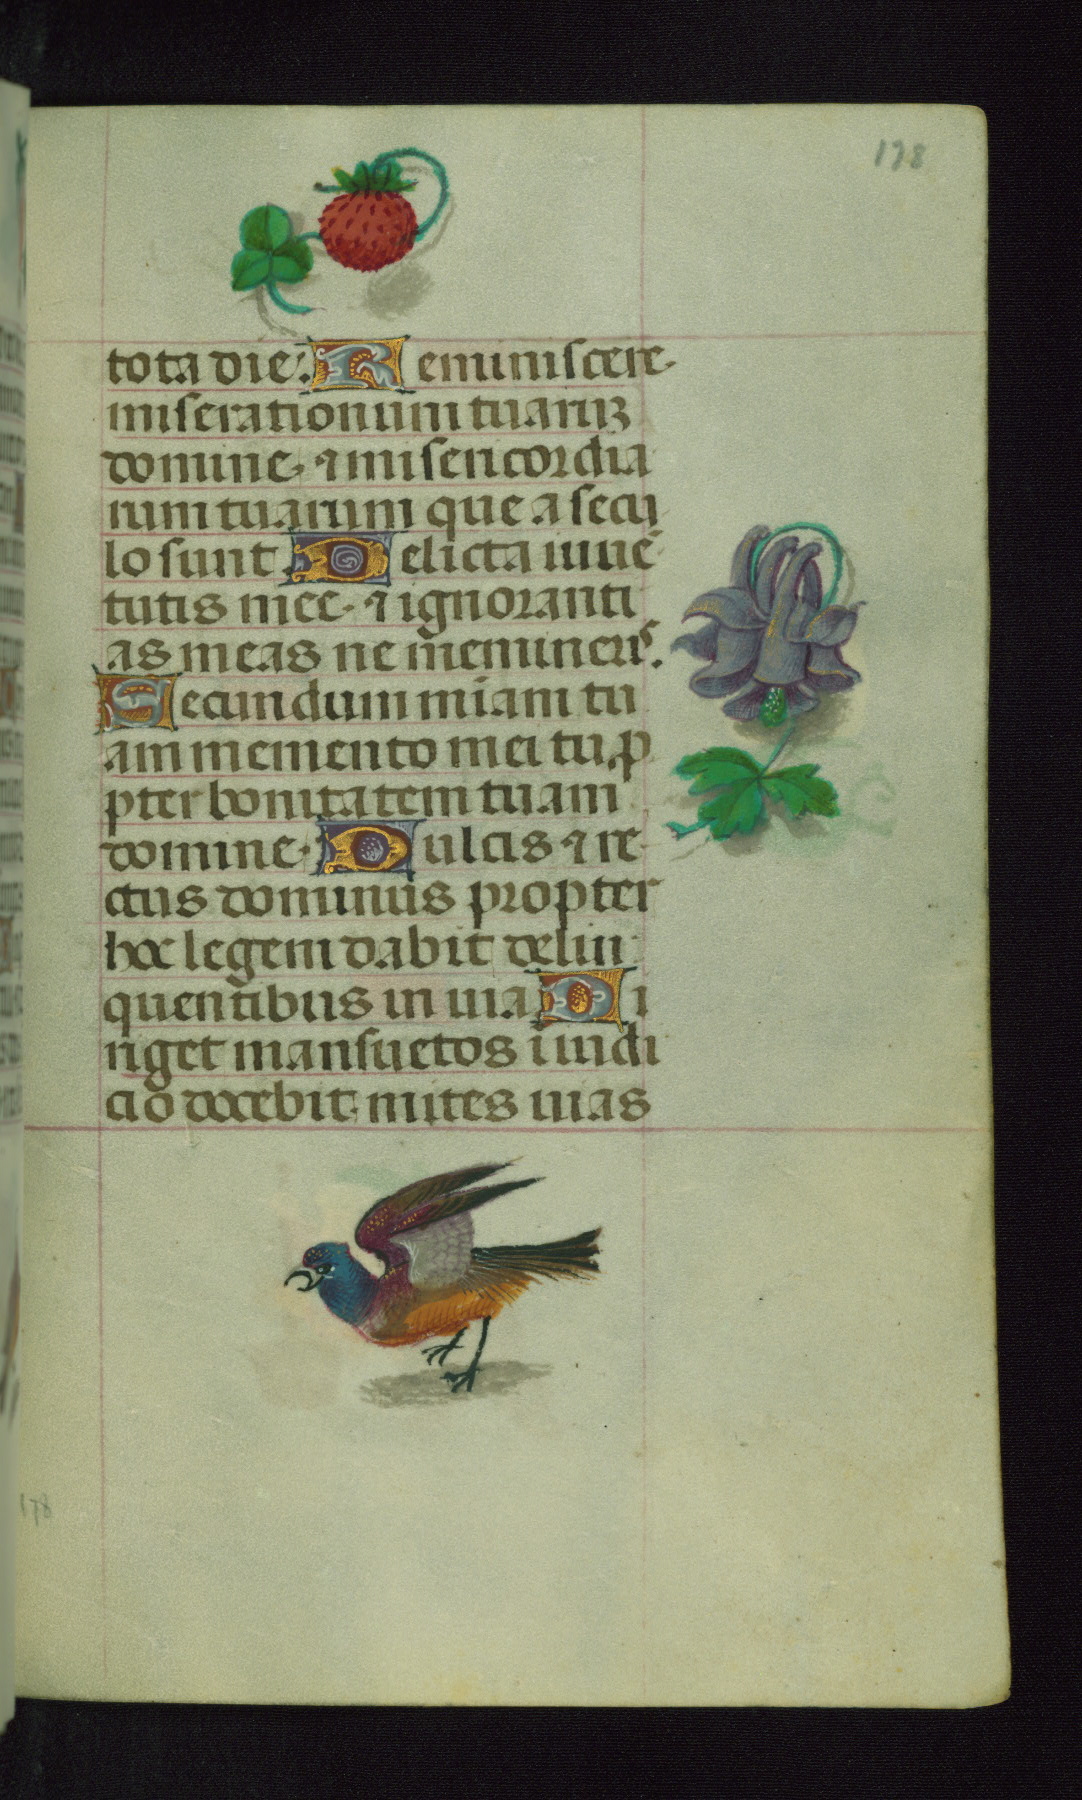 198
tota die. Reminiscere
miserationum tuarꝝ
domine. ⁊ misericordia
rum tuarum que a secu
lo sunt Delicta iuue
tutis mee. ⁊ ignoranti
as meas ne memineris.
Secundum miam tu
am memento mei tu. ꝓ
pter bonitatem tuam
domine. Dulcis ⁊ re
ctus dominus propter
hoc legem dabit delin
quentibus in uia Di
riget mansuetos i iudi
cio docebit mites uias
178